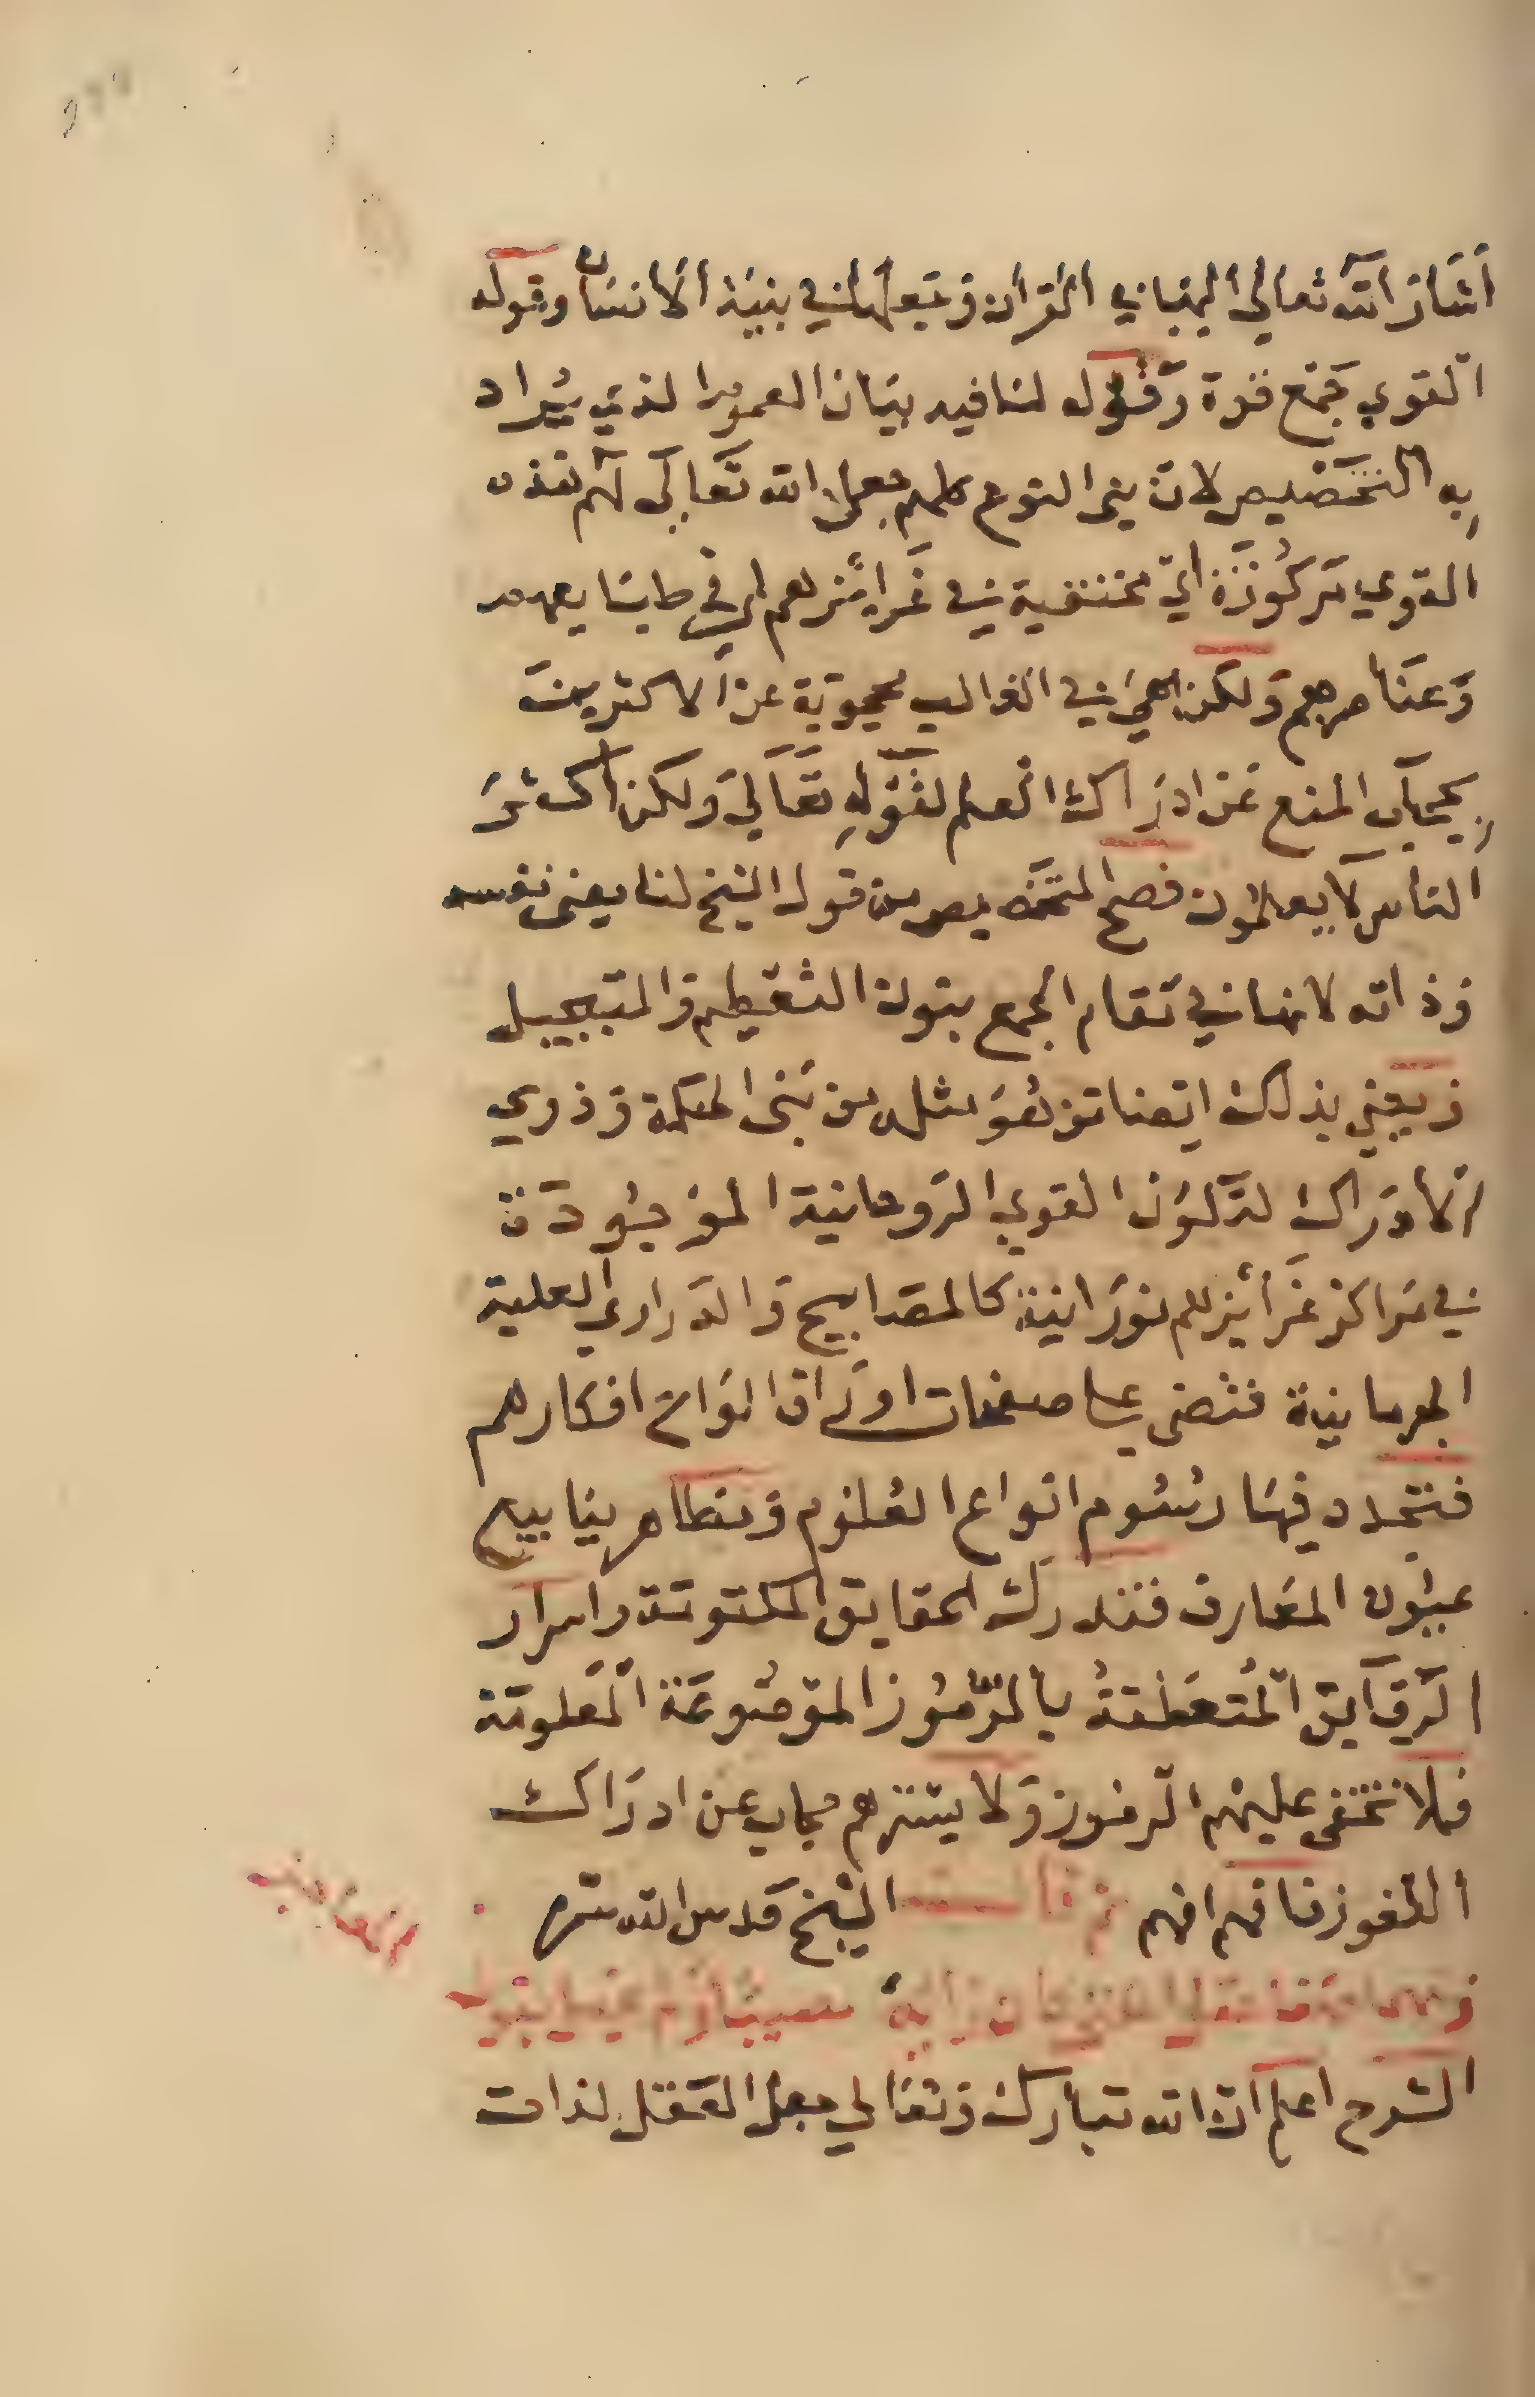 أشار الله تعالى اليها في القرآن وجعلها في بنية الانسان وقوله
القوي جمع قوة وقوله لنا فيه بيان العموم الذي يراد
به التخصيص لان بني النوع كلهم جعل الله تعالى لهم هذه
القوي مركوزة اي مختفية في غرائزهم اي في طبايعهم
وعناصرهم ولكن هي في الغالب محجوبة عن الاكثرين
بحجاب المنع عن ادراك العلم لقوله تعالى ولكن اكثر
الناس لا يعلمون فصح التخصيص من قول الشيخ لنا يعني نفسه
وذاته لانها في مقام الجمع بنون التعظيم والتبجيل
ويعني بذلك ايضا من هو مثله من بني الحكمة وذوي
الادراك لتكون القوي الروحانية الموجودة
في مراكز غرائزهم نورانية كالمصابيح والدراري العلية
الجرمانية فتضي على صفحات اوراق الواح افكارهم
فتتجدد فيها رسوم انواع العلوم وتظاهر ينابيع
عيون المعارف فتدرك الحقايق المكتومة واسرار
الرقايق المتعلقة بالرموز الموضوعة المعلومة
فلا تختفي عليهم الرموز ولا يسترهم حجاب عن ادراك
اللغوز فافهم افهم قال الشيخ قدس الله سره
الشرح اعلم ان الله تبارك وتعالى جعل العقل لذات